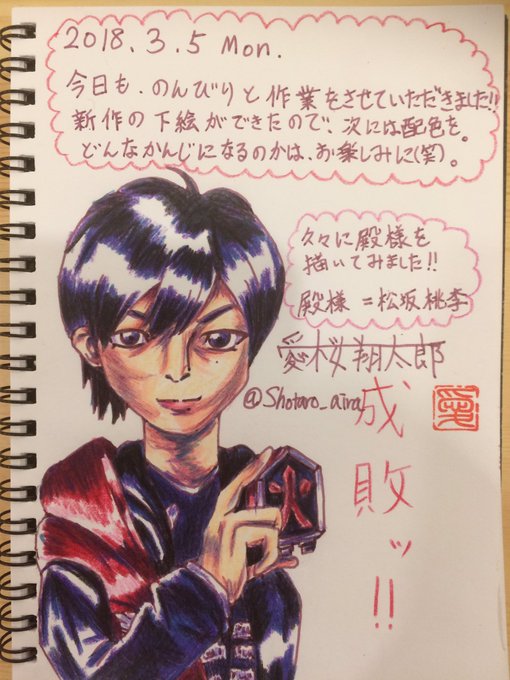 2018.3.5 Mon.
今日も、のんびりと作業をさせていただきました!!
新作の下絵ができたので、次には配色を。
どんなかんじになるのかは、お楽しみに(笑)。
久々に殿様を
描いてみました!!
殿様＝松坂桃李
愛桜翔太郎
@Shotaro_aira
愛
成敗ッ!!
火